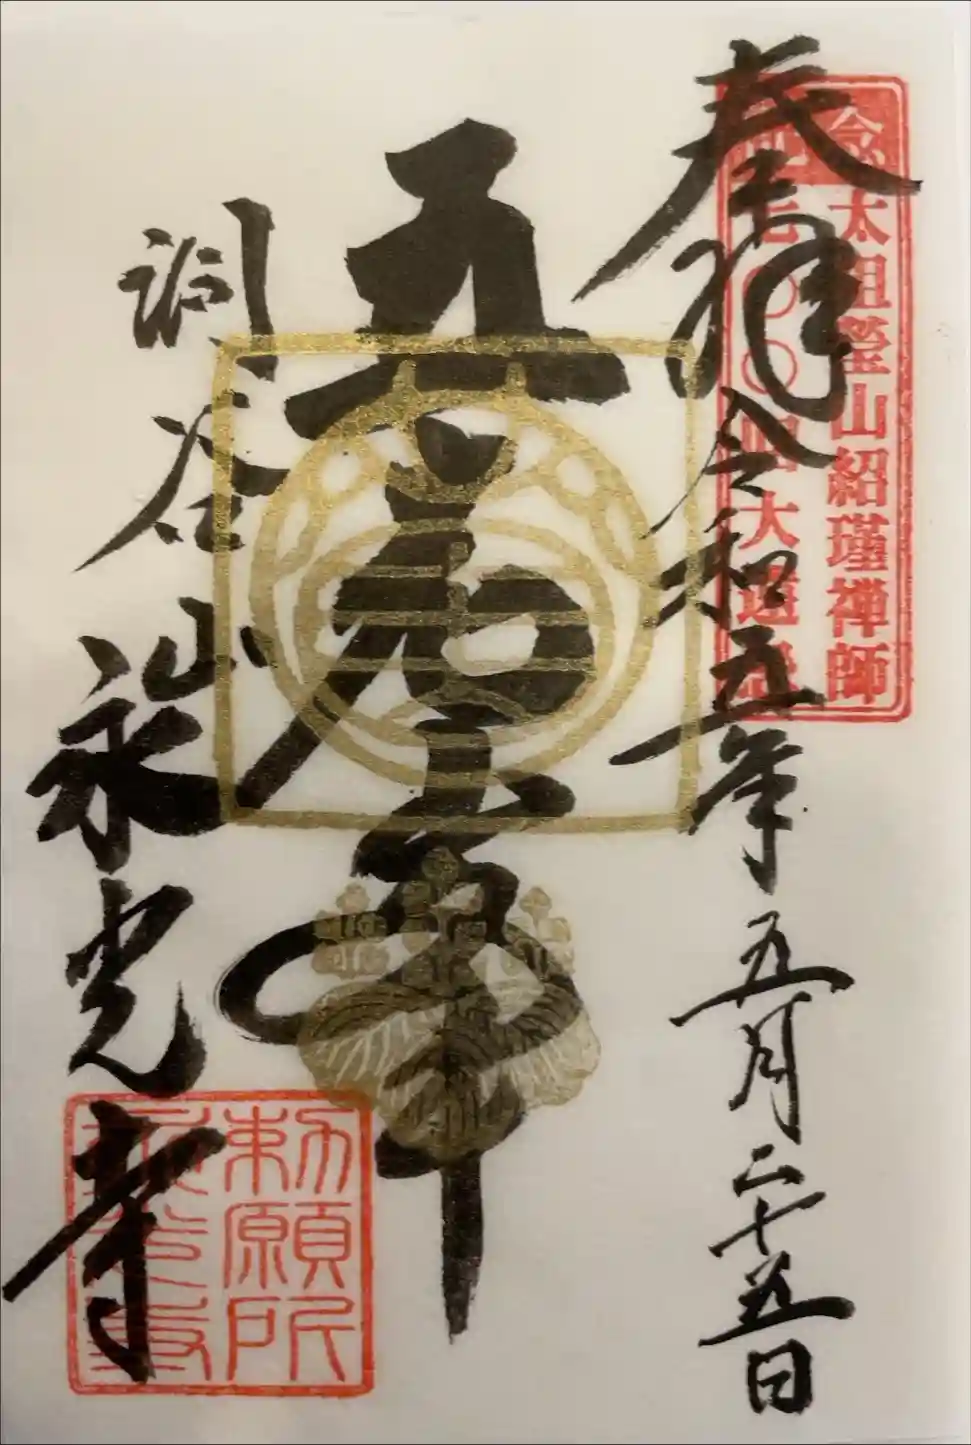 奉拝 令和五年五月二十五日
念
太祖瑩山紹瑾禅師
七〇〇回大遠忌
五老峯
洞谷山 永光寺
勅願所